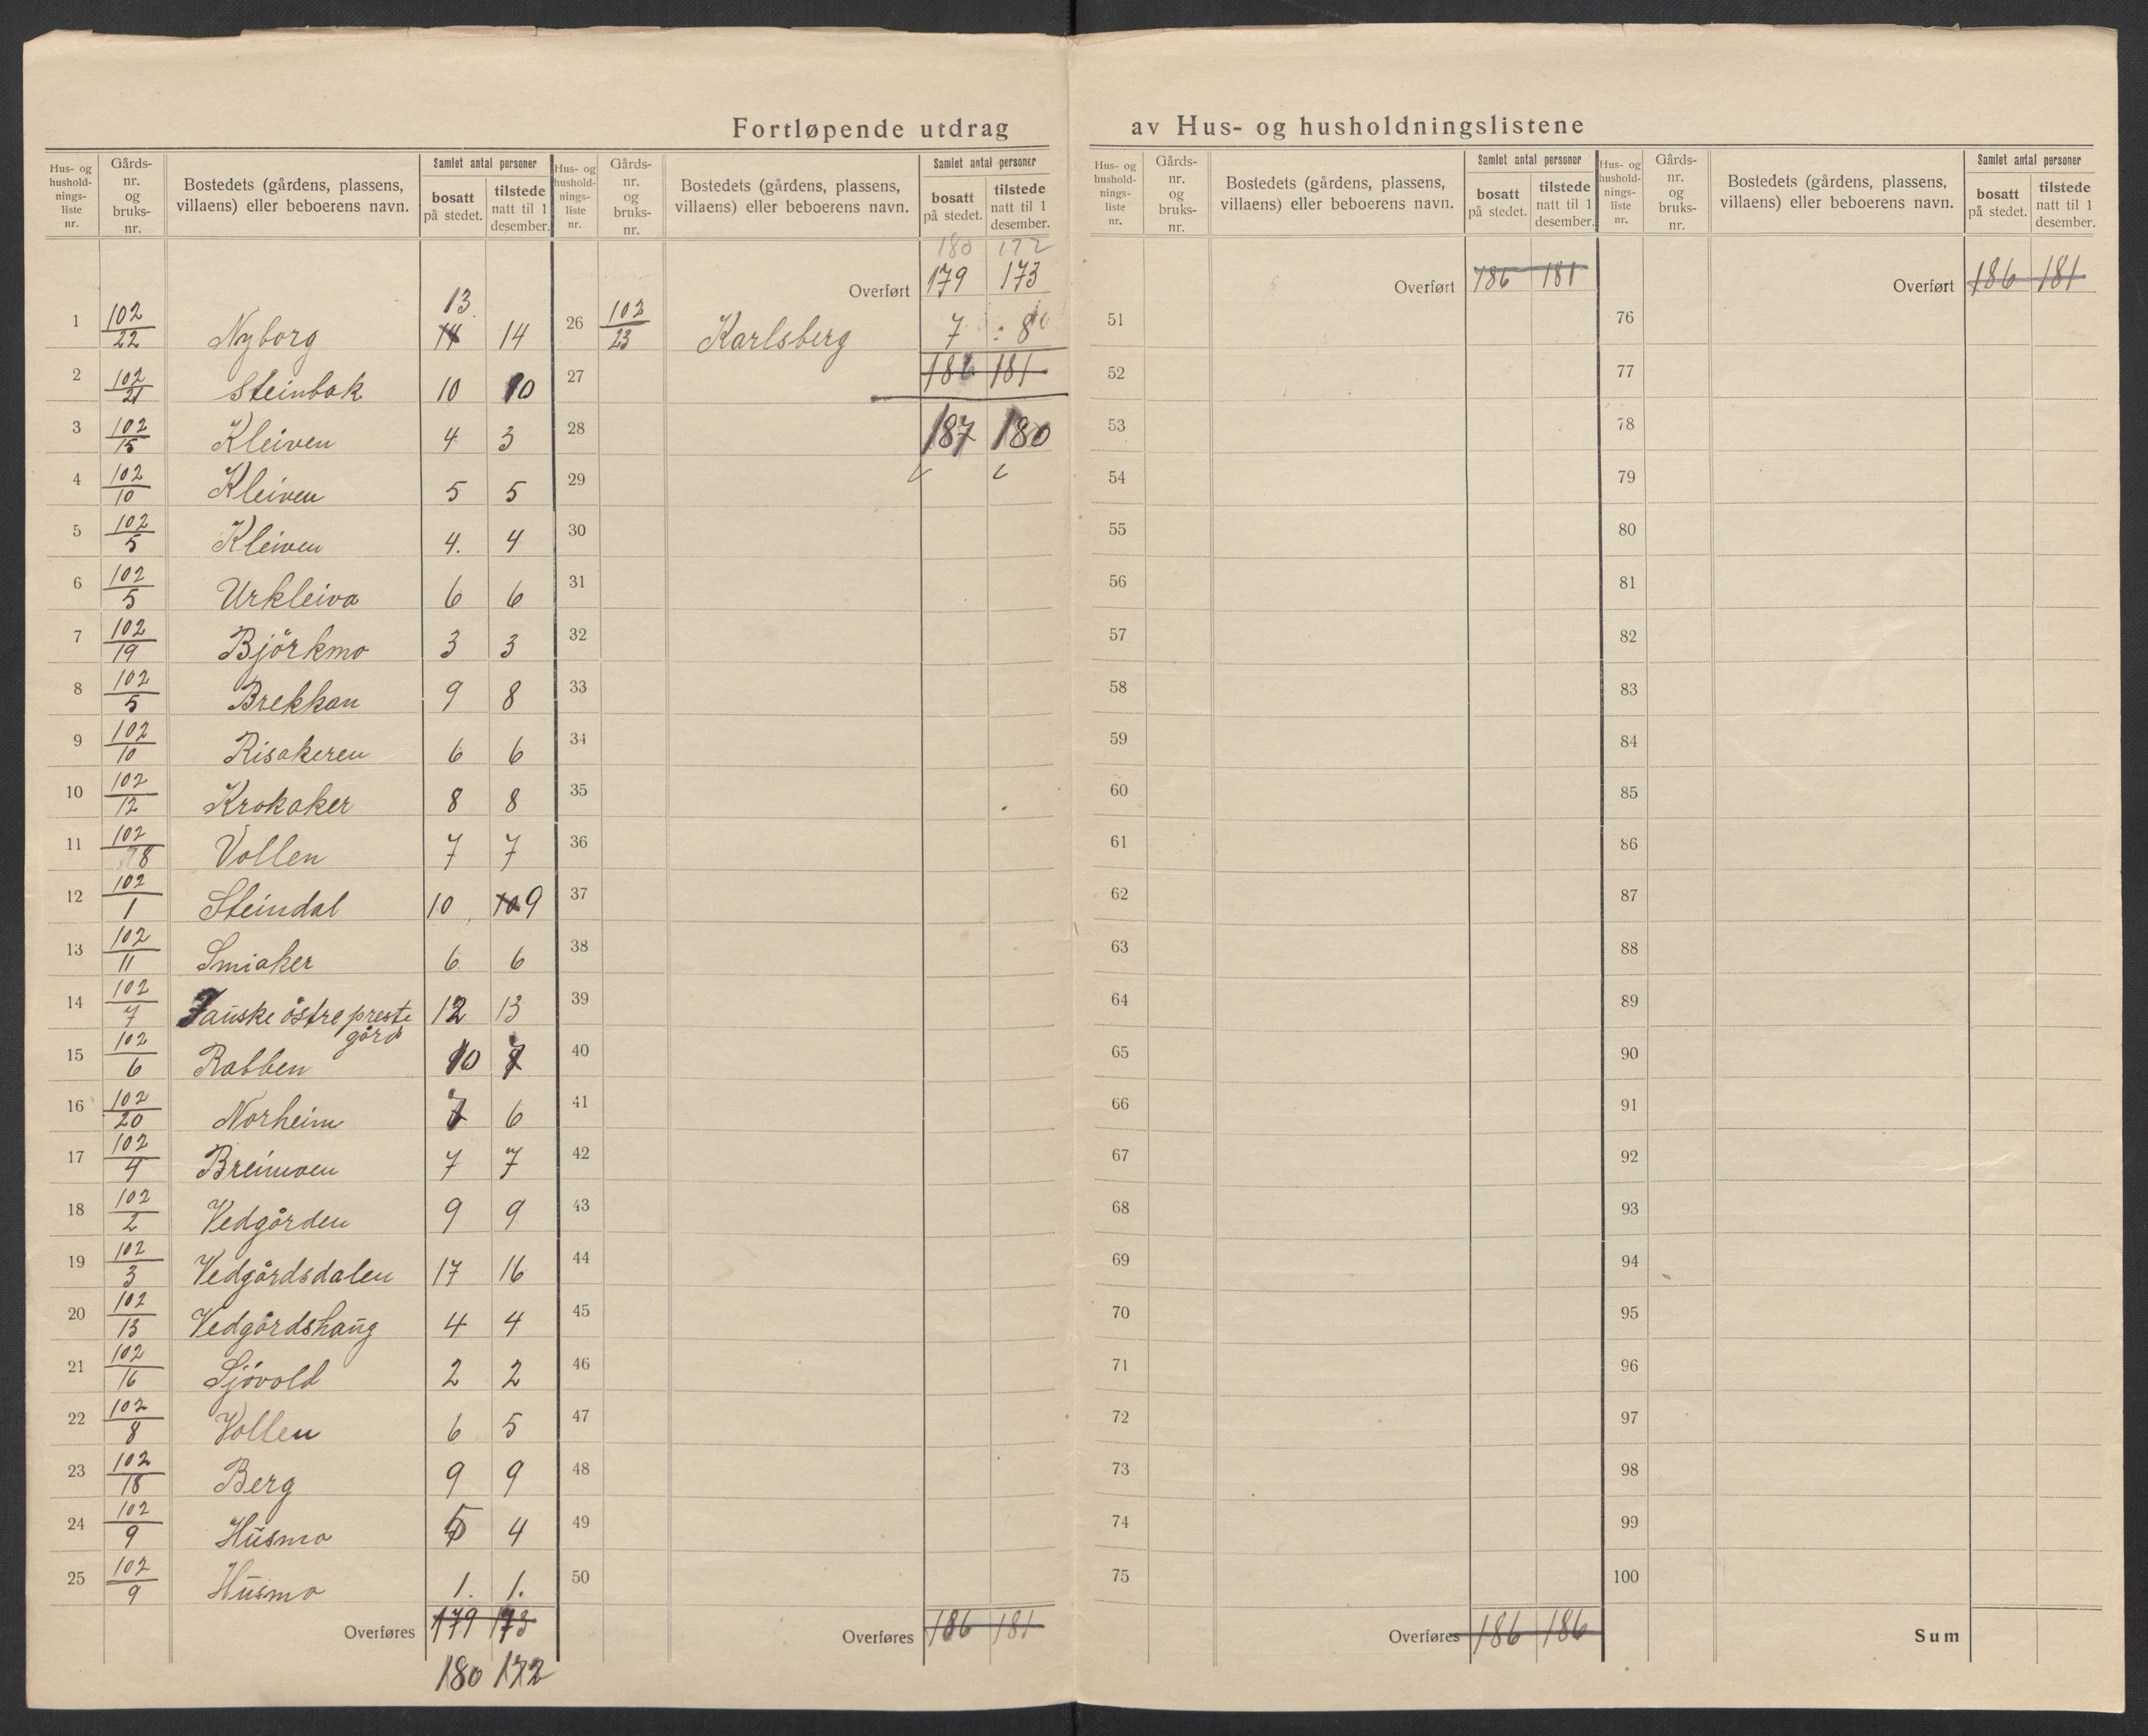 Fortløpende utdrag av Hus- og husholdningslistene
Hus- og hushold-nings-liste nr. | Gårds-nr. og bruks-nr. | Bostedets (gårdens, plassens, villaens) eller beboerens navn. | Samlet antal personer | bosatt på stedet. | tilstede natt til 1 desember.
Hus- og hushold-nings-liste nr. | Gårds-nr. og bruks-nr. | Bostedets (gårdens, plassens, villaens) eller beboerens navn. | Samlet antal personer | bosatt på stedet. | tilstede natt til 1 desember.
Hus- og hushold-nings-liste nr. | Gårds-nr. og bruks-nr. | Bostedets (gårdens, plassens, villaens) eller beboerens navn. | Samlet antal personer | bosatt på stedet. | tilstede natt til 1 desember.
Hus- og hushold-nings-liste nr. | Gårds-nr. og bruks-nr. | Bostedets (gårdens, plassens, villaens) eller beboerens navn. | Samlet antal personer | bosatt på stedet. | tilstede natt til 1 desember.
13
1 102/22 Nyborg 14 14
2 102/21 Steinbak 10 10
3 102/15 Kleiven 4 3
4 102/10 Kleiven 5 5
5 102/5 Kleiven 4. 4
6 102/5 Urkleiva 6 6
7 102/19 Björkmo 3 3
8 102/5 Brekkan 9 8
9 102/10 Risakeren 6 6
10 102/12 Krokaker 8 8
11 102/8 Vollen 7 7
12 102/1 Steindal 10 10 9
13 102/11 Smiaker 6 6
14 102/7 Fauske östre preste gård 12 13
15 102/6 Rabben 10 7
16 102/20 Norheim 7 6
17 102/4 Breimoen 7 7
18 102/2 Vedgården 9 9
19 102/3 Vedgårdsdalen 17 16
20 102/13 Vedgårdshaug 4 4
21 102/16 Sjövold 2 2
22 102/8 Vollen 6 5
23 102/18 Berg 9 9
24 102/9 Husmo 5 4
25 102/9 Husmo 1. 1.
Overføres 179 173
180 172
180 172
Overført 179 173
26 102/23 Karlsberg 7 8
27 186 181
28 187 180
29
30
31
32
33
34
35
36
37
38
39
40
41
42
43
44
45
46
47
48
49
50
Overføres 186 181
Overført 186 181
51
52
53
54
55
56
57
58
59
60
61
62
63
64
65
66
67
68
69
70
71
72
73
74
75
Overføres 186 186
Overført 186 181
76
77
78
79
80
81
82
83
84
85
86
87
88
89
90
91
92
93
94
95
96
97
98
99
100
Sum